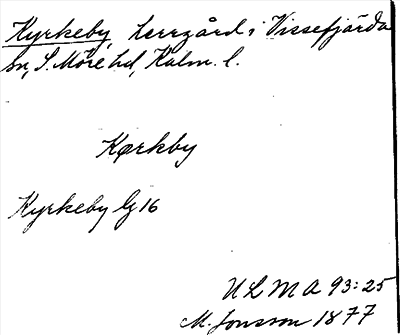 Kyrkeby, herrgård i Vissefjärda
sn, S. Möre hd, Kalm. l.
Kørkby
Kyrkeby Lg 16
ULMA 93:25
M. Jonsson 1877